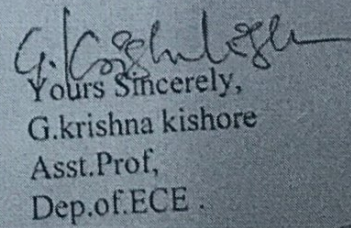 Yours Sincerely,
G.krishna kishore
Asst.Prof,
Dep.of.ECE .